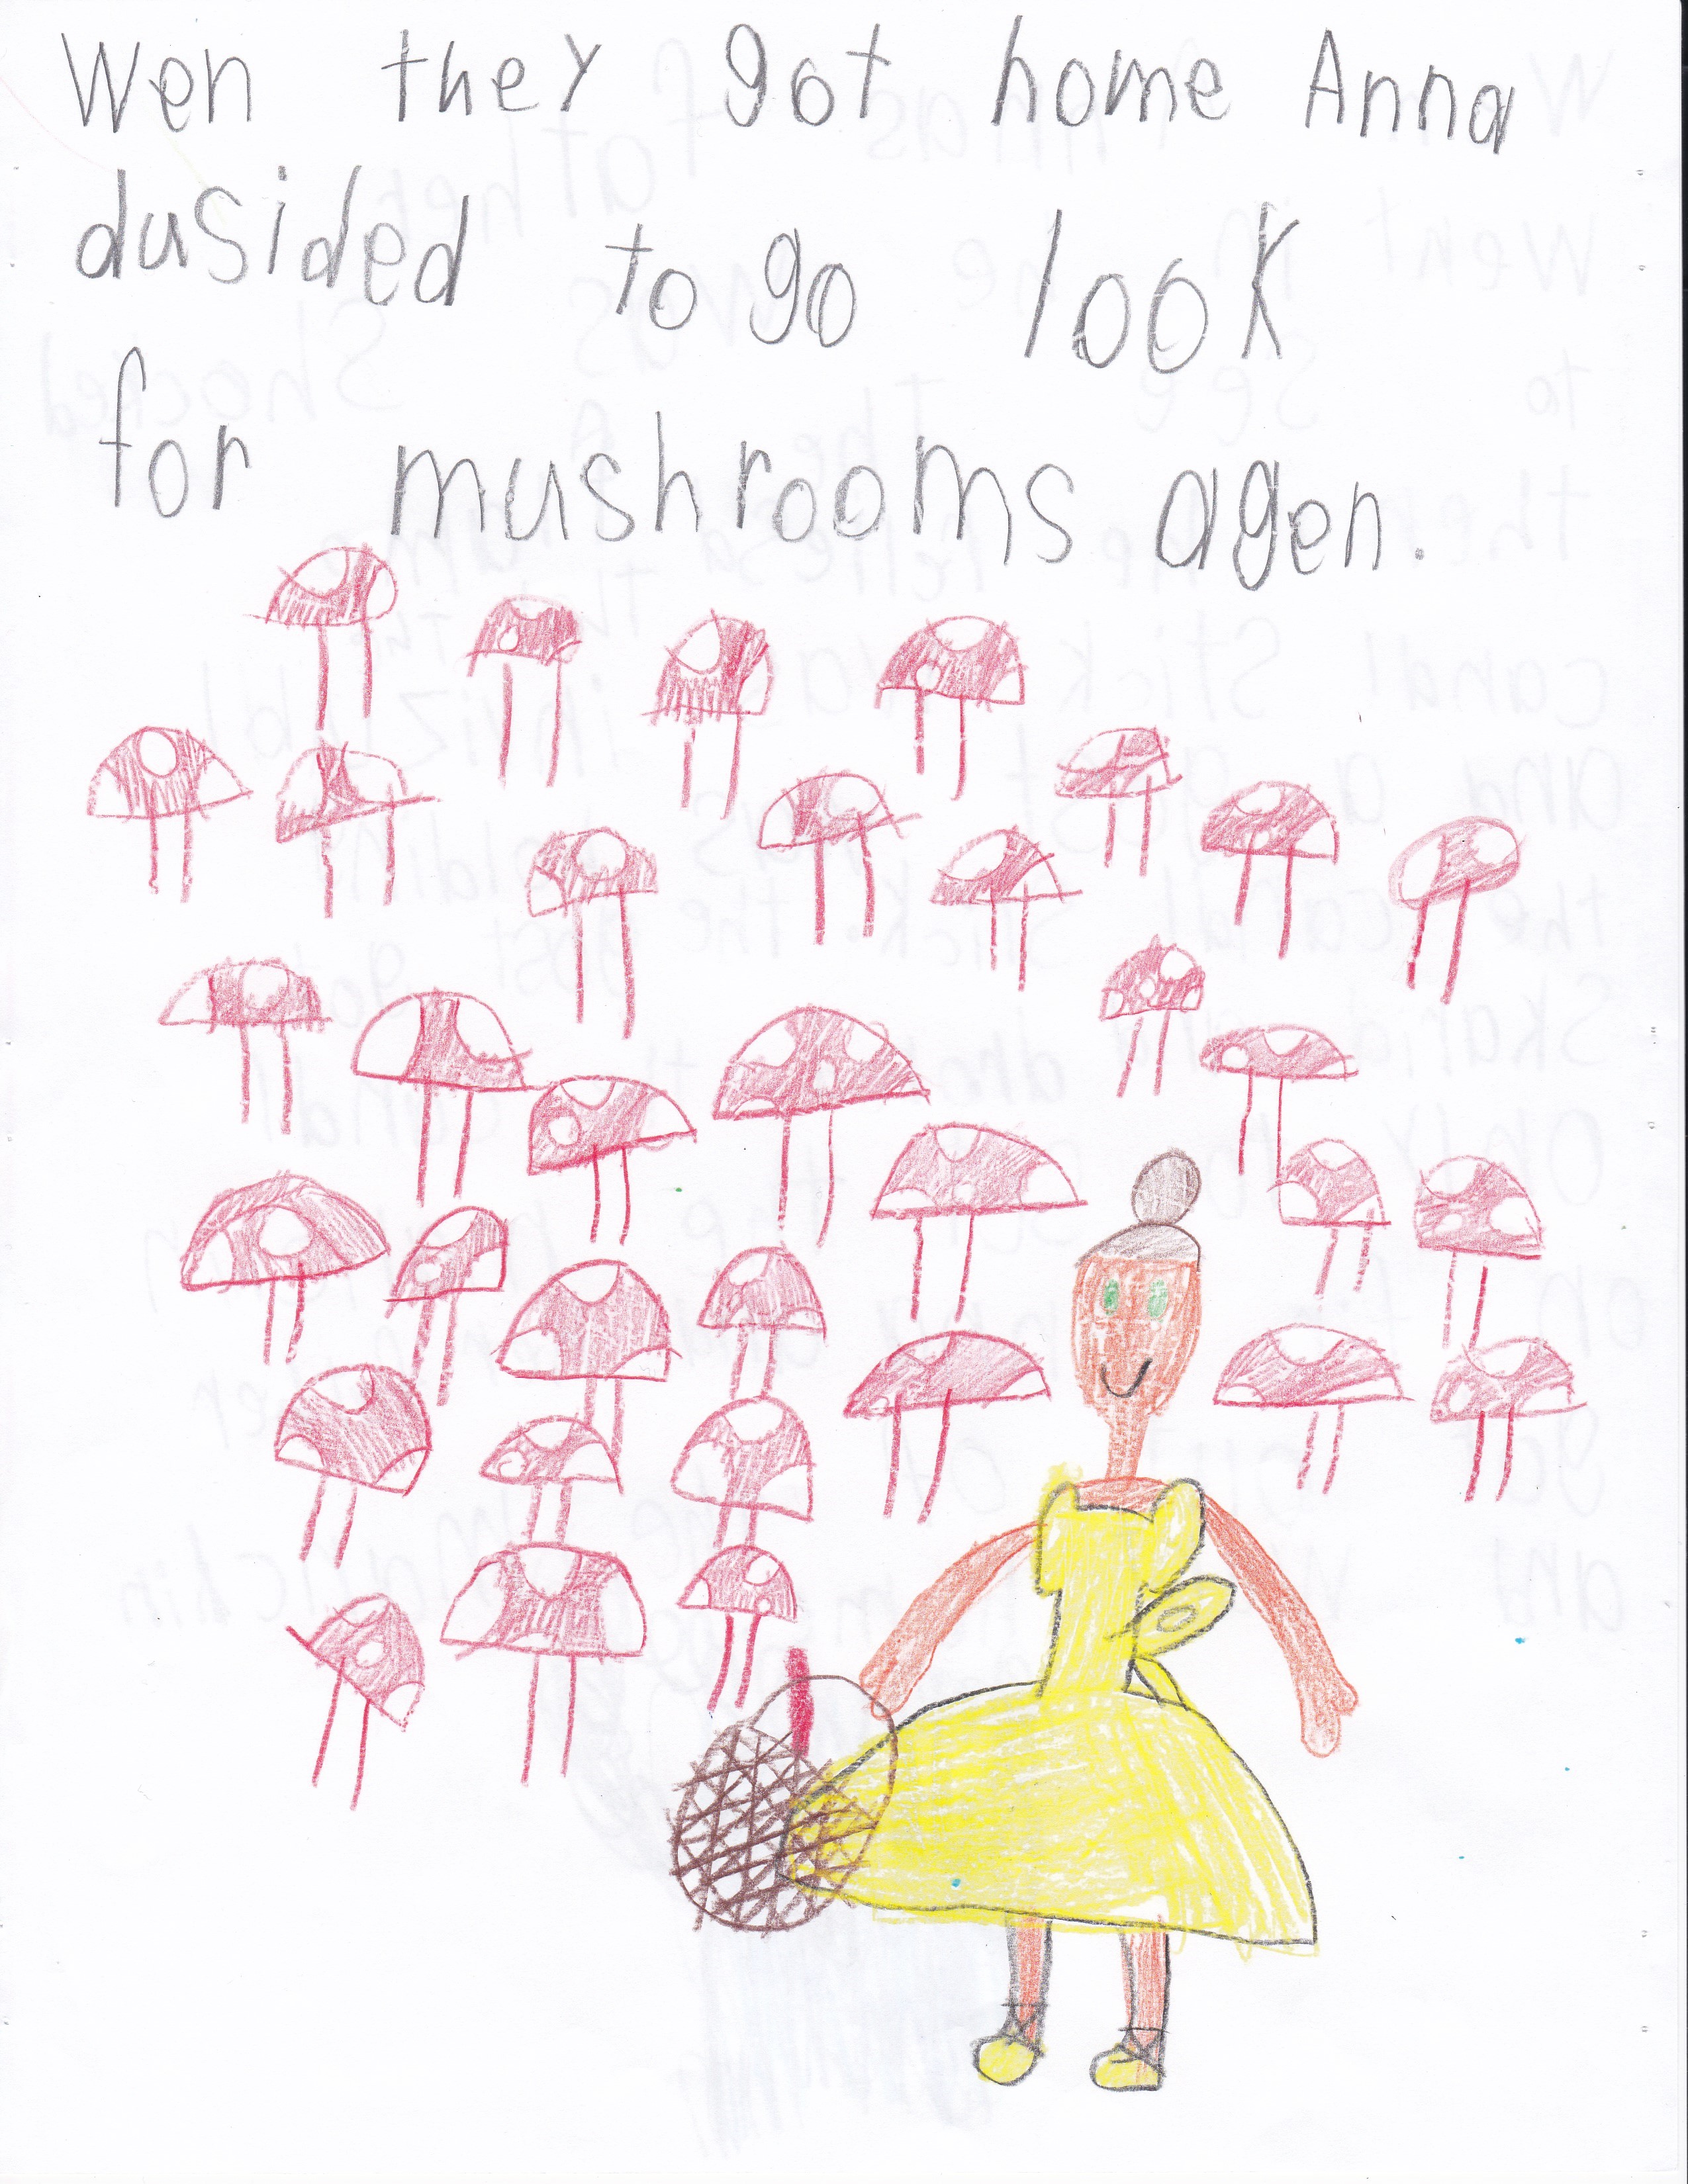 Wen they got home Anna
dusided to go look
for mushrooms agen.